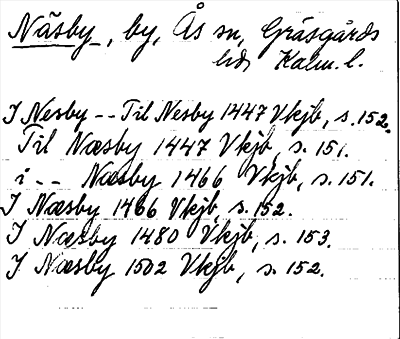 Näsby, by, Ås sn, Gräsgårds
hd Kalm. l.
I Nesby -- Til Nesby 1447 Vkjb, s. 152.
Til Næsby 1447 Vkjb, s. 151.
i -- Næsby 1466 Vkjb, s. 151.
I Næsby 1466 Vkjb, s. 152.
I Næsby 1480 Vkjb, s. 153.
I Næsby 1502 Vkjb, s. 152.